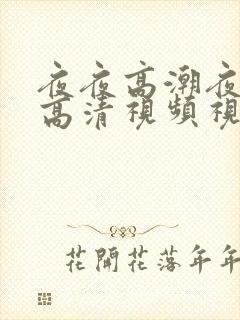 夜夜高潮夜
高清視頻視
花開花落年年